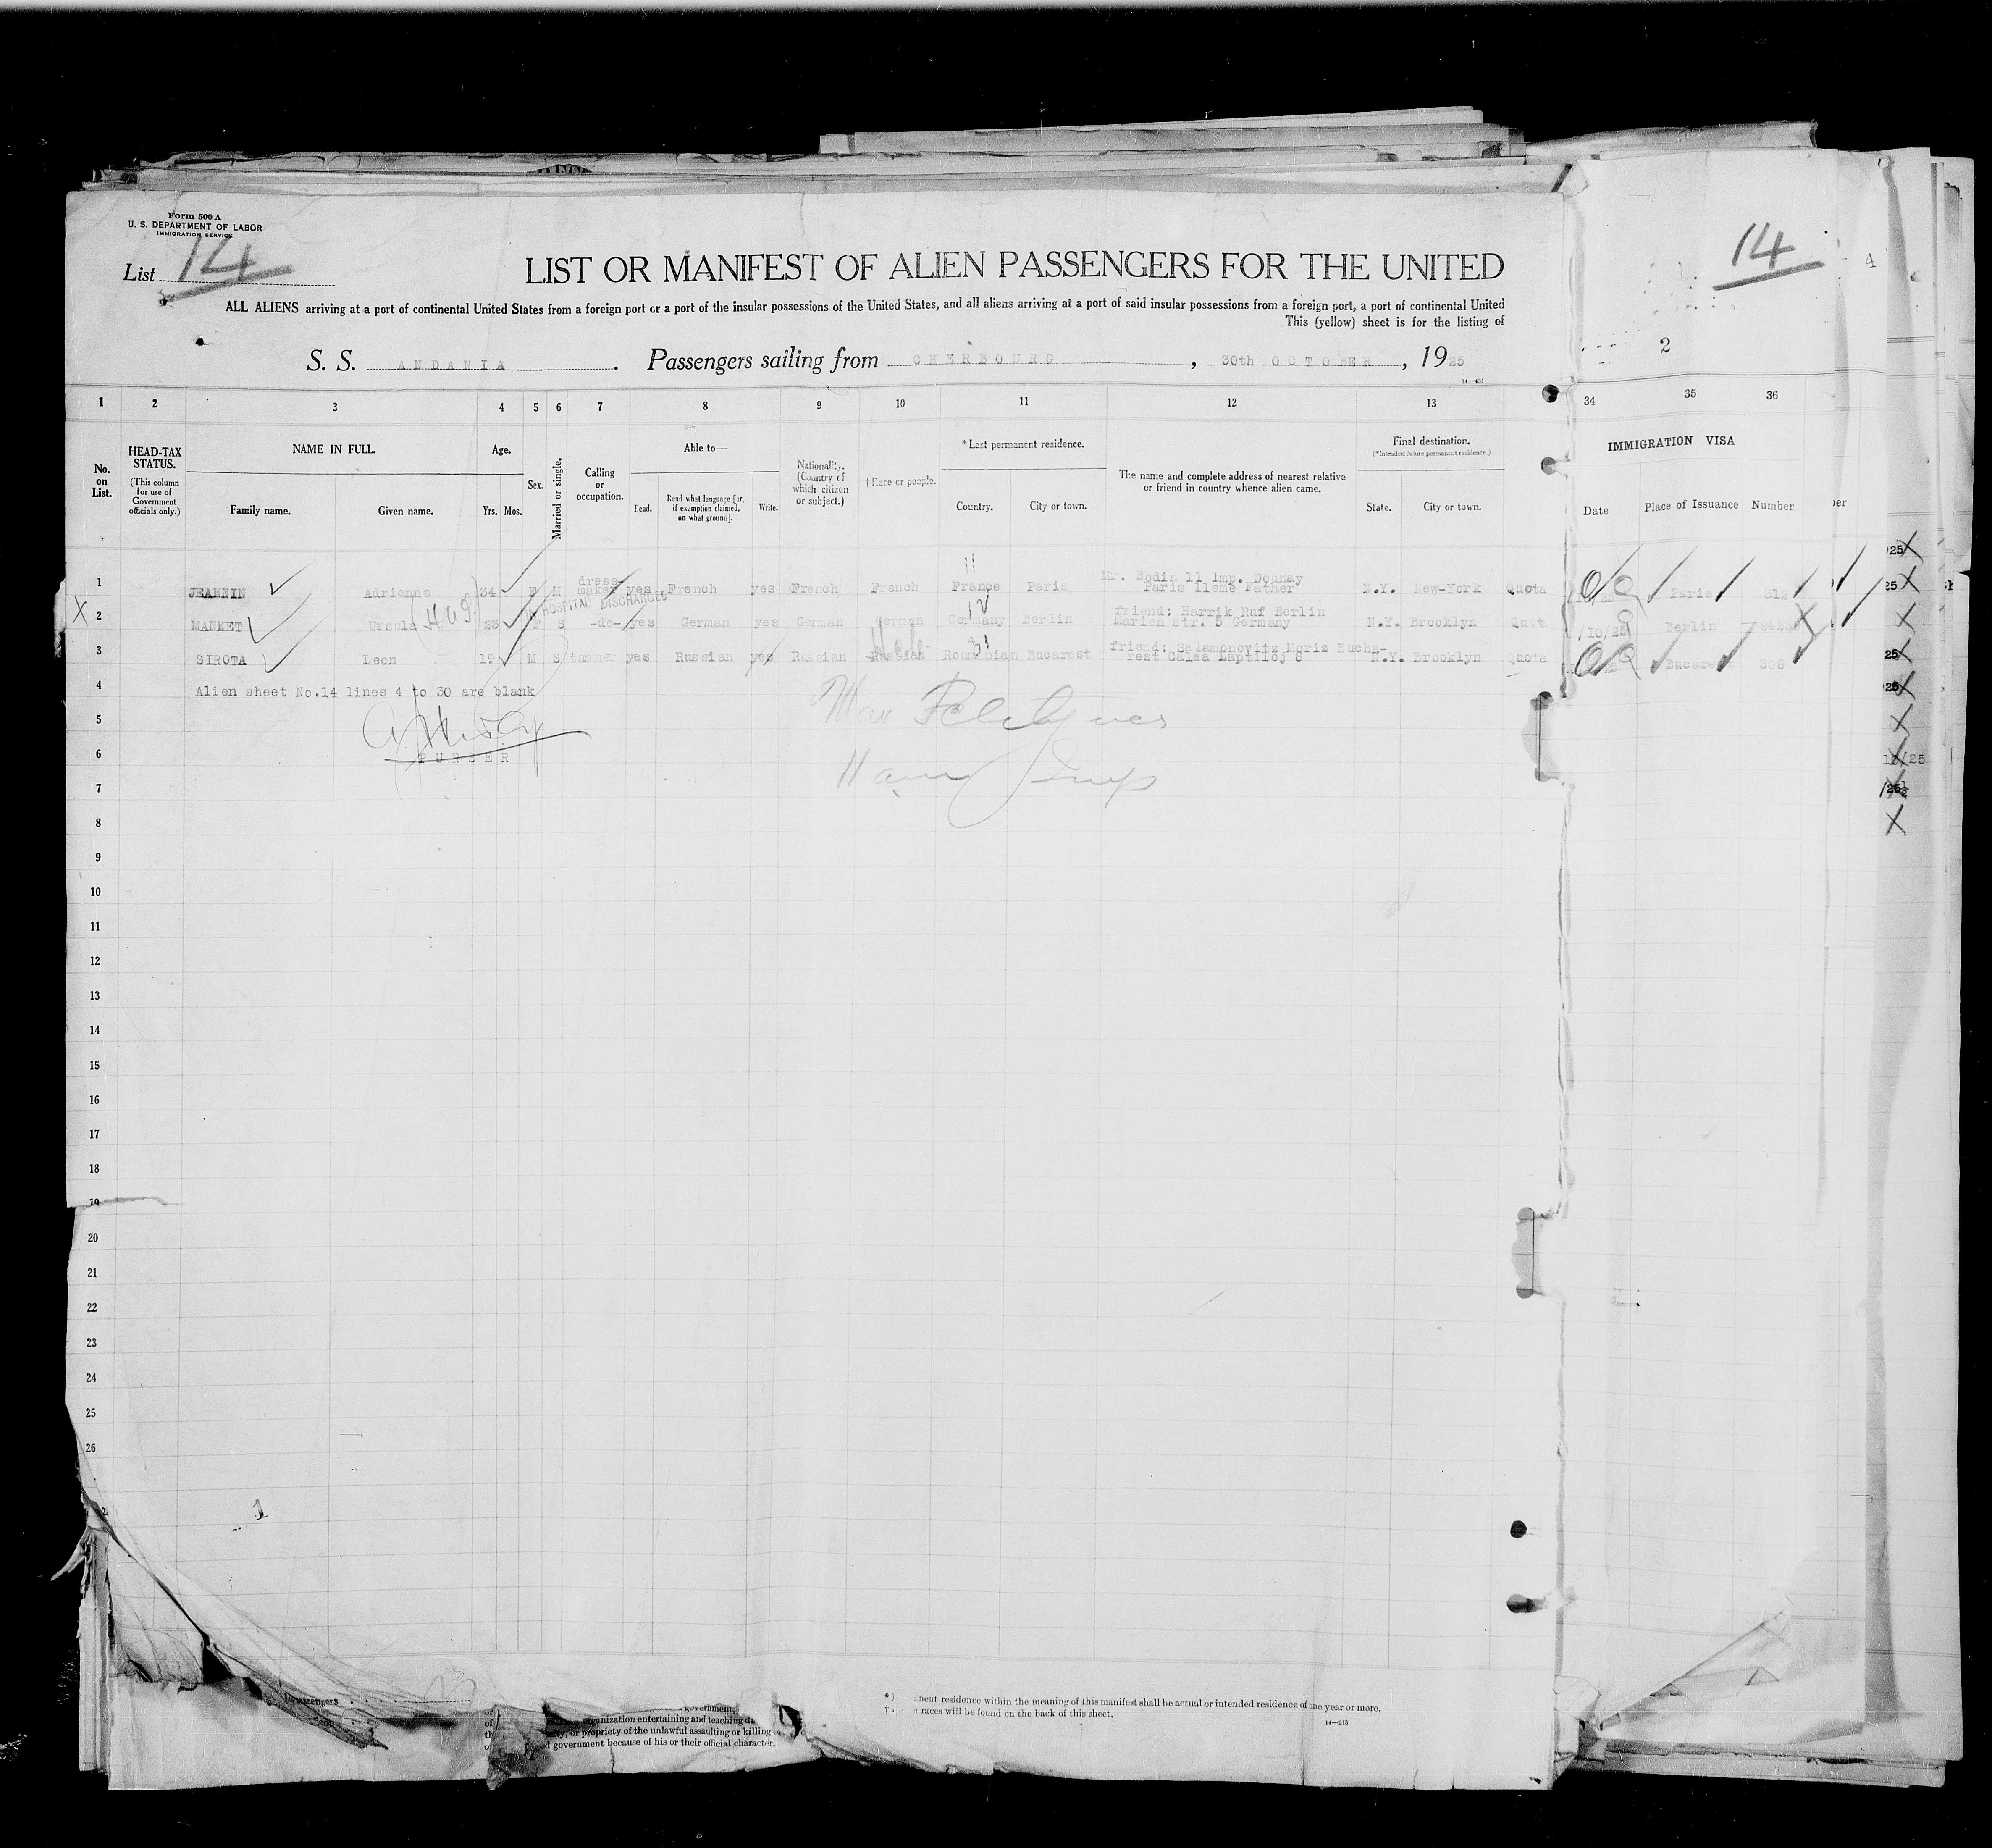 Form 500 A
U. S. DEPARTMENT OF LABOR
IMMIGRATION SERVICE
List 14
LIST OR MANIFEST OF ALIEN PASSENGERS FOR THE UNITED
ALL ALIENS arriving at a port of continental United States from a foreign port or a port of the insular possessions of the United States, and all aliens arriving at a port of said insular possessions from a foreign port, a port of continental United
This (yellow) sheet is for the listing of
S. S. ANDANIA . Passengers sailing from CHERBOURG , 30th OCTOBER , 1925
14—431
14
4
2
1 2 3 4 5 6 7 8 9 10 11 12 13 34 35 36
No. on List.
HEAD-TAX STATUS.
(This column for use of Government officials only.)
NAME IN FULL.
Family name. Given name.
Age.
Yrs. Mos.
Sex.
Married or single.
Calling or occupation.
Able to—
Read. Read what language [or, if exemption claimed, on what ground]. Write.
Nationality. (Country of which citizen or subject.)
†Race or people.
*Last permanent residence.
Country. City or town.
The name and complete address of nearest relative or friend in country whence alien came.
Final destination.
(*Intended future permanent residence.)
State. City or town.
IMMIGRATION VISA
Date Place of Issuance Number
1 JEANNIN Adrienne 34 F M dress-maker yes French yes French French France Paris Mr. Bodin 11 Imp. Dounay Paris IIeme Father N.Y. New-York Quota Paris 312
HOSPITAL DISCHARGED
X 2 MANKET Ursula 23 F S -do- yes German yes German German Germany Berlin friend: Harrik Ruf Berlin Marien str. 5 Germany N.Y. Brooklyn Quot /10/25 Berlin
3 SIROTA Leon 19 M S tanner yes Russian yes Russian Russian Roumanian Bucarest friend: Salamonovitz Moriz Bucha-rest Calea Laptiloj 8 N.Y. Brooklyn Quota Bucarest 308
4 Alien sheet No.14 lines 4 to 30 are blank
5
6 PURSER
7
8
9
10
11
12
13
14
15
16
17
18
19
20
21
22
23
24
25
26
passengers
government,
organization entertaining and teaching
or propriety of the unlawful assaulting or killing
government because of his or their official character.
nent residence within the meaning of this manifest shall be actual or intended residence of one year or more.
races will be found on the back of this sheet.
14—213